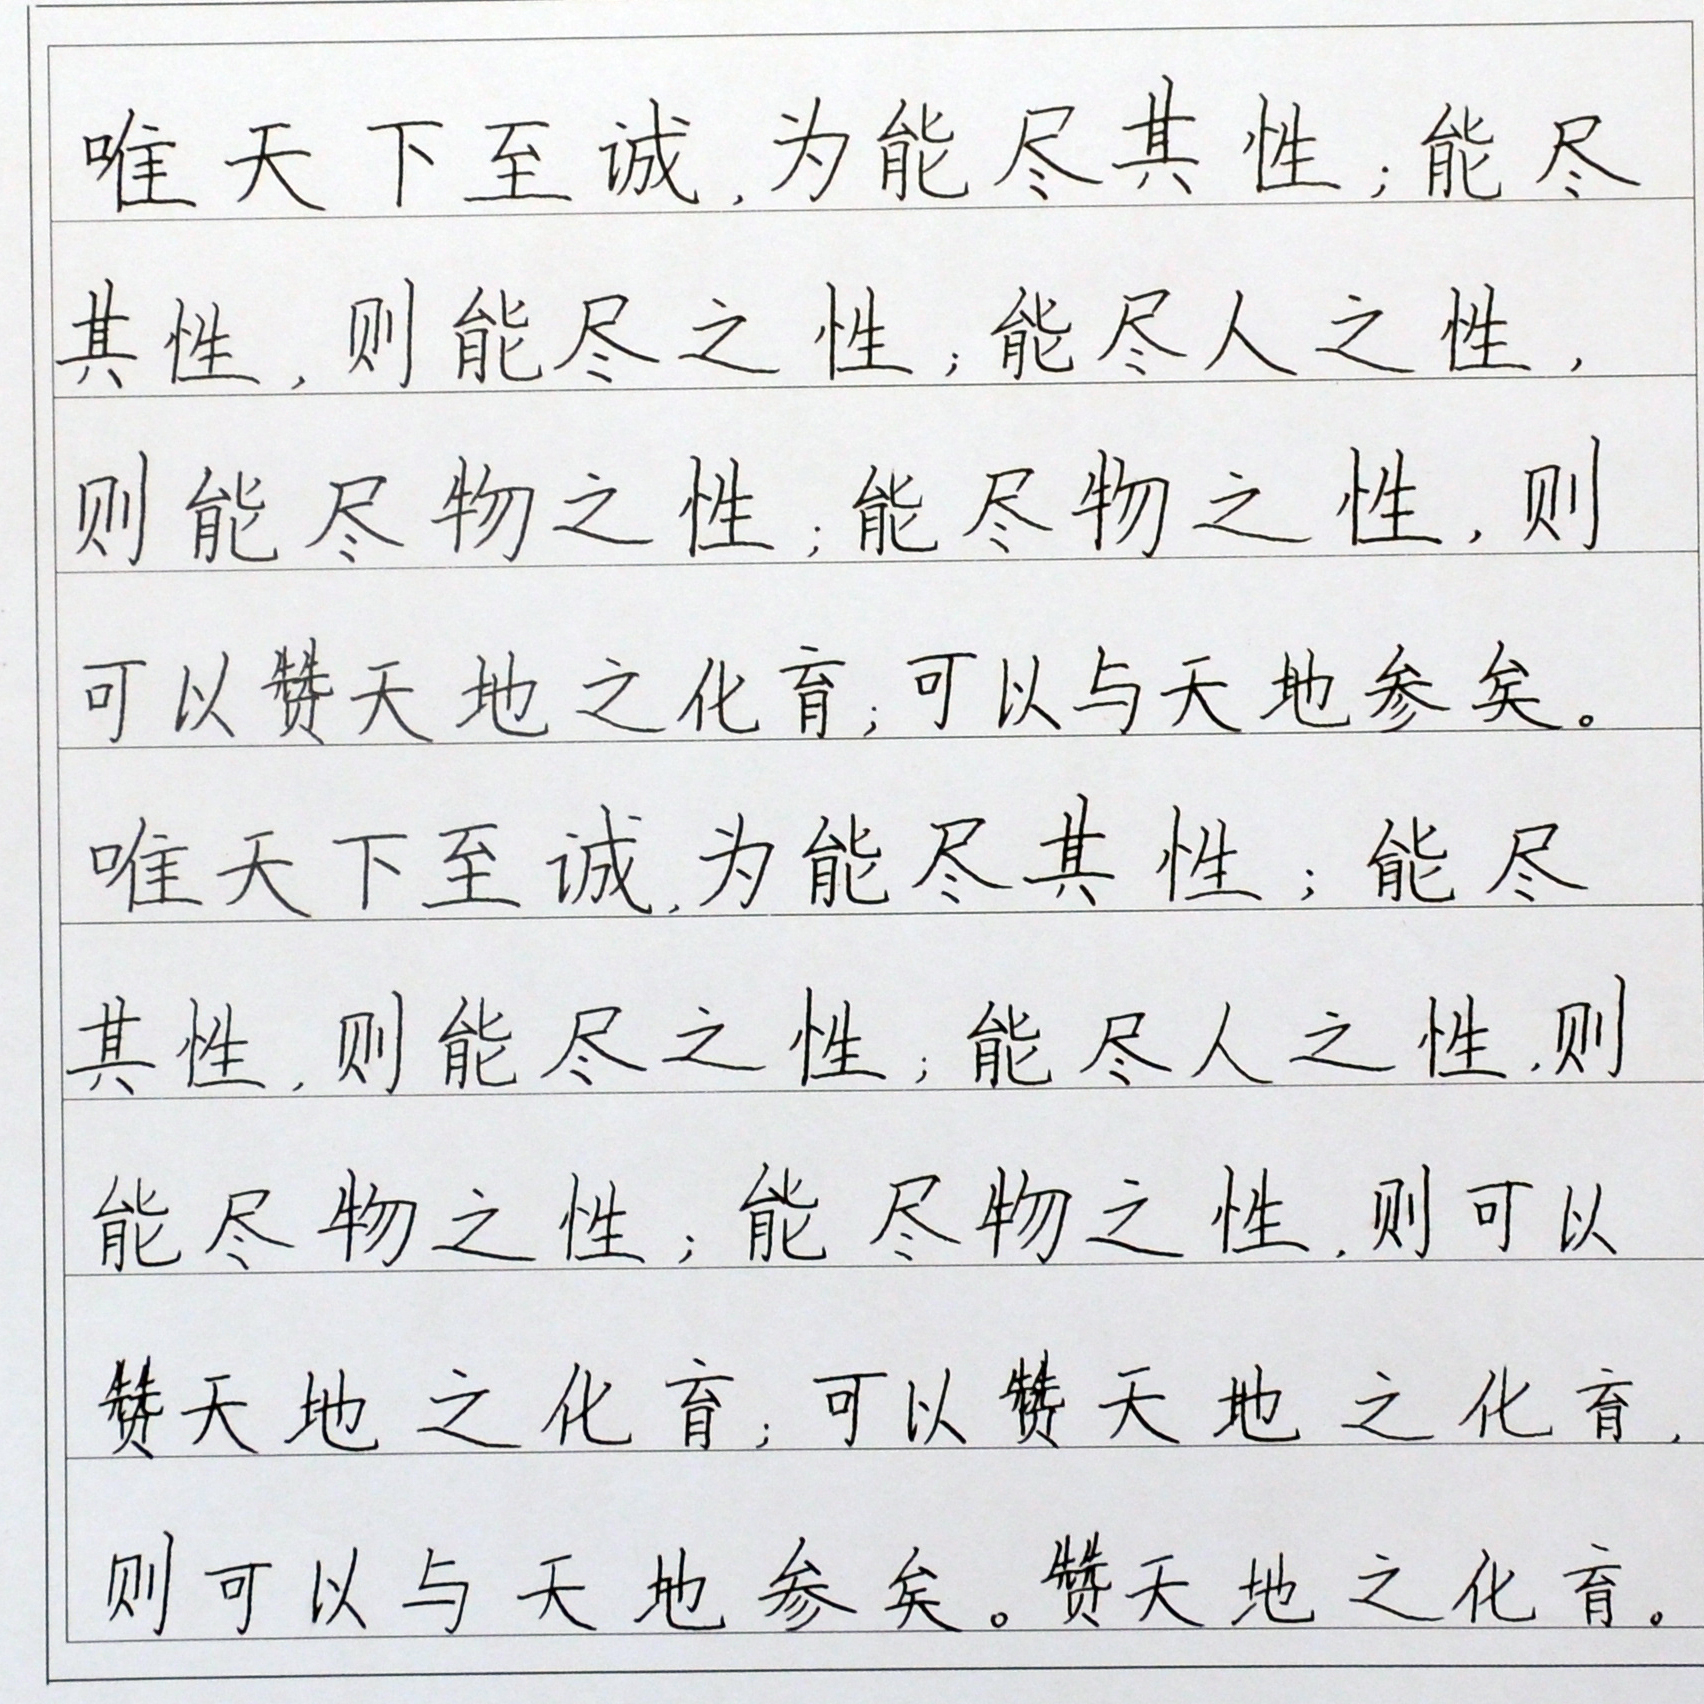 唯天下至诚,为能尽其性;能尽
其性,则能尽之性;能尽人之性,
则能尽物之性;能尽物之性,则
可以赞天地之化育;可以与天地参矣。
唯天下至诚,为能尽其性;能尽
其性,则能尽之性;能尽人之性,则
能尽物之性;能尽物之性,则可以
赞天地之化育;可以赞天地之化育,
则可以与天地参矣。赞天地之化育。